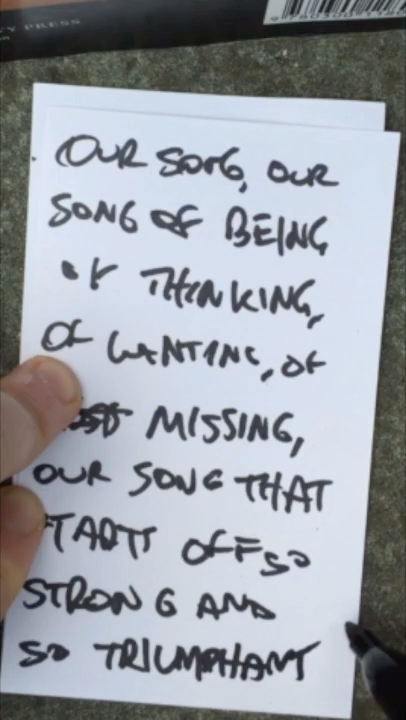 PRESS
OUR SONG, OUR
SONG OF BEING
OF THINKING,
OF WANTING, OF
MISSING,
OUR SONG THAT
STARTS OFF SO
STRONG AND
SO TRIUMPHANT